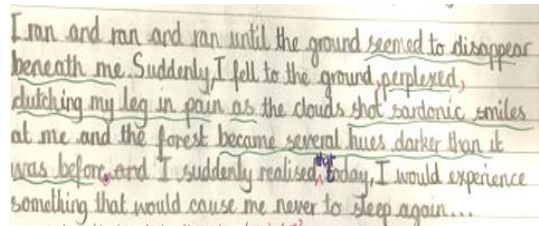 I ran and ran and ran until the ground seemed to disappear
beneath me. Suddenly, I fell to the ground, perplexed,
clutching my leg in pain as the clouds shot sardonic smiles
at me and the forest became several hues darker than it
was before, and I suddenly realised, that today, I would experience
something that would cause me never to sleep again...